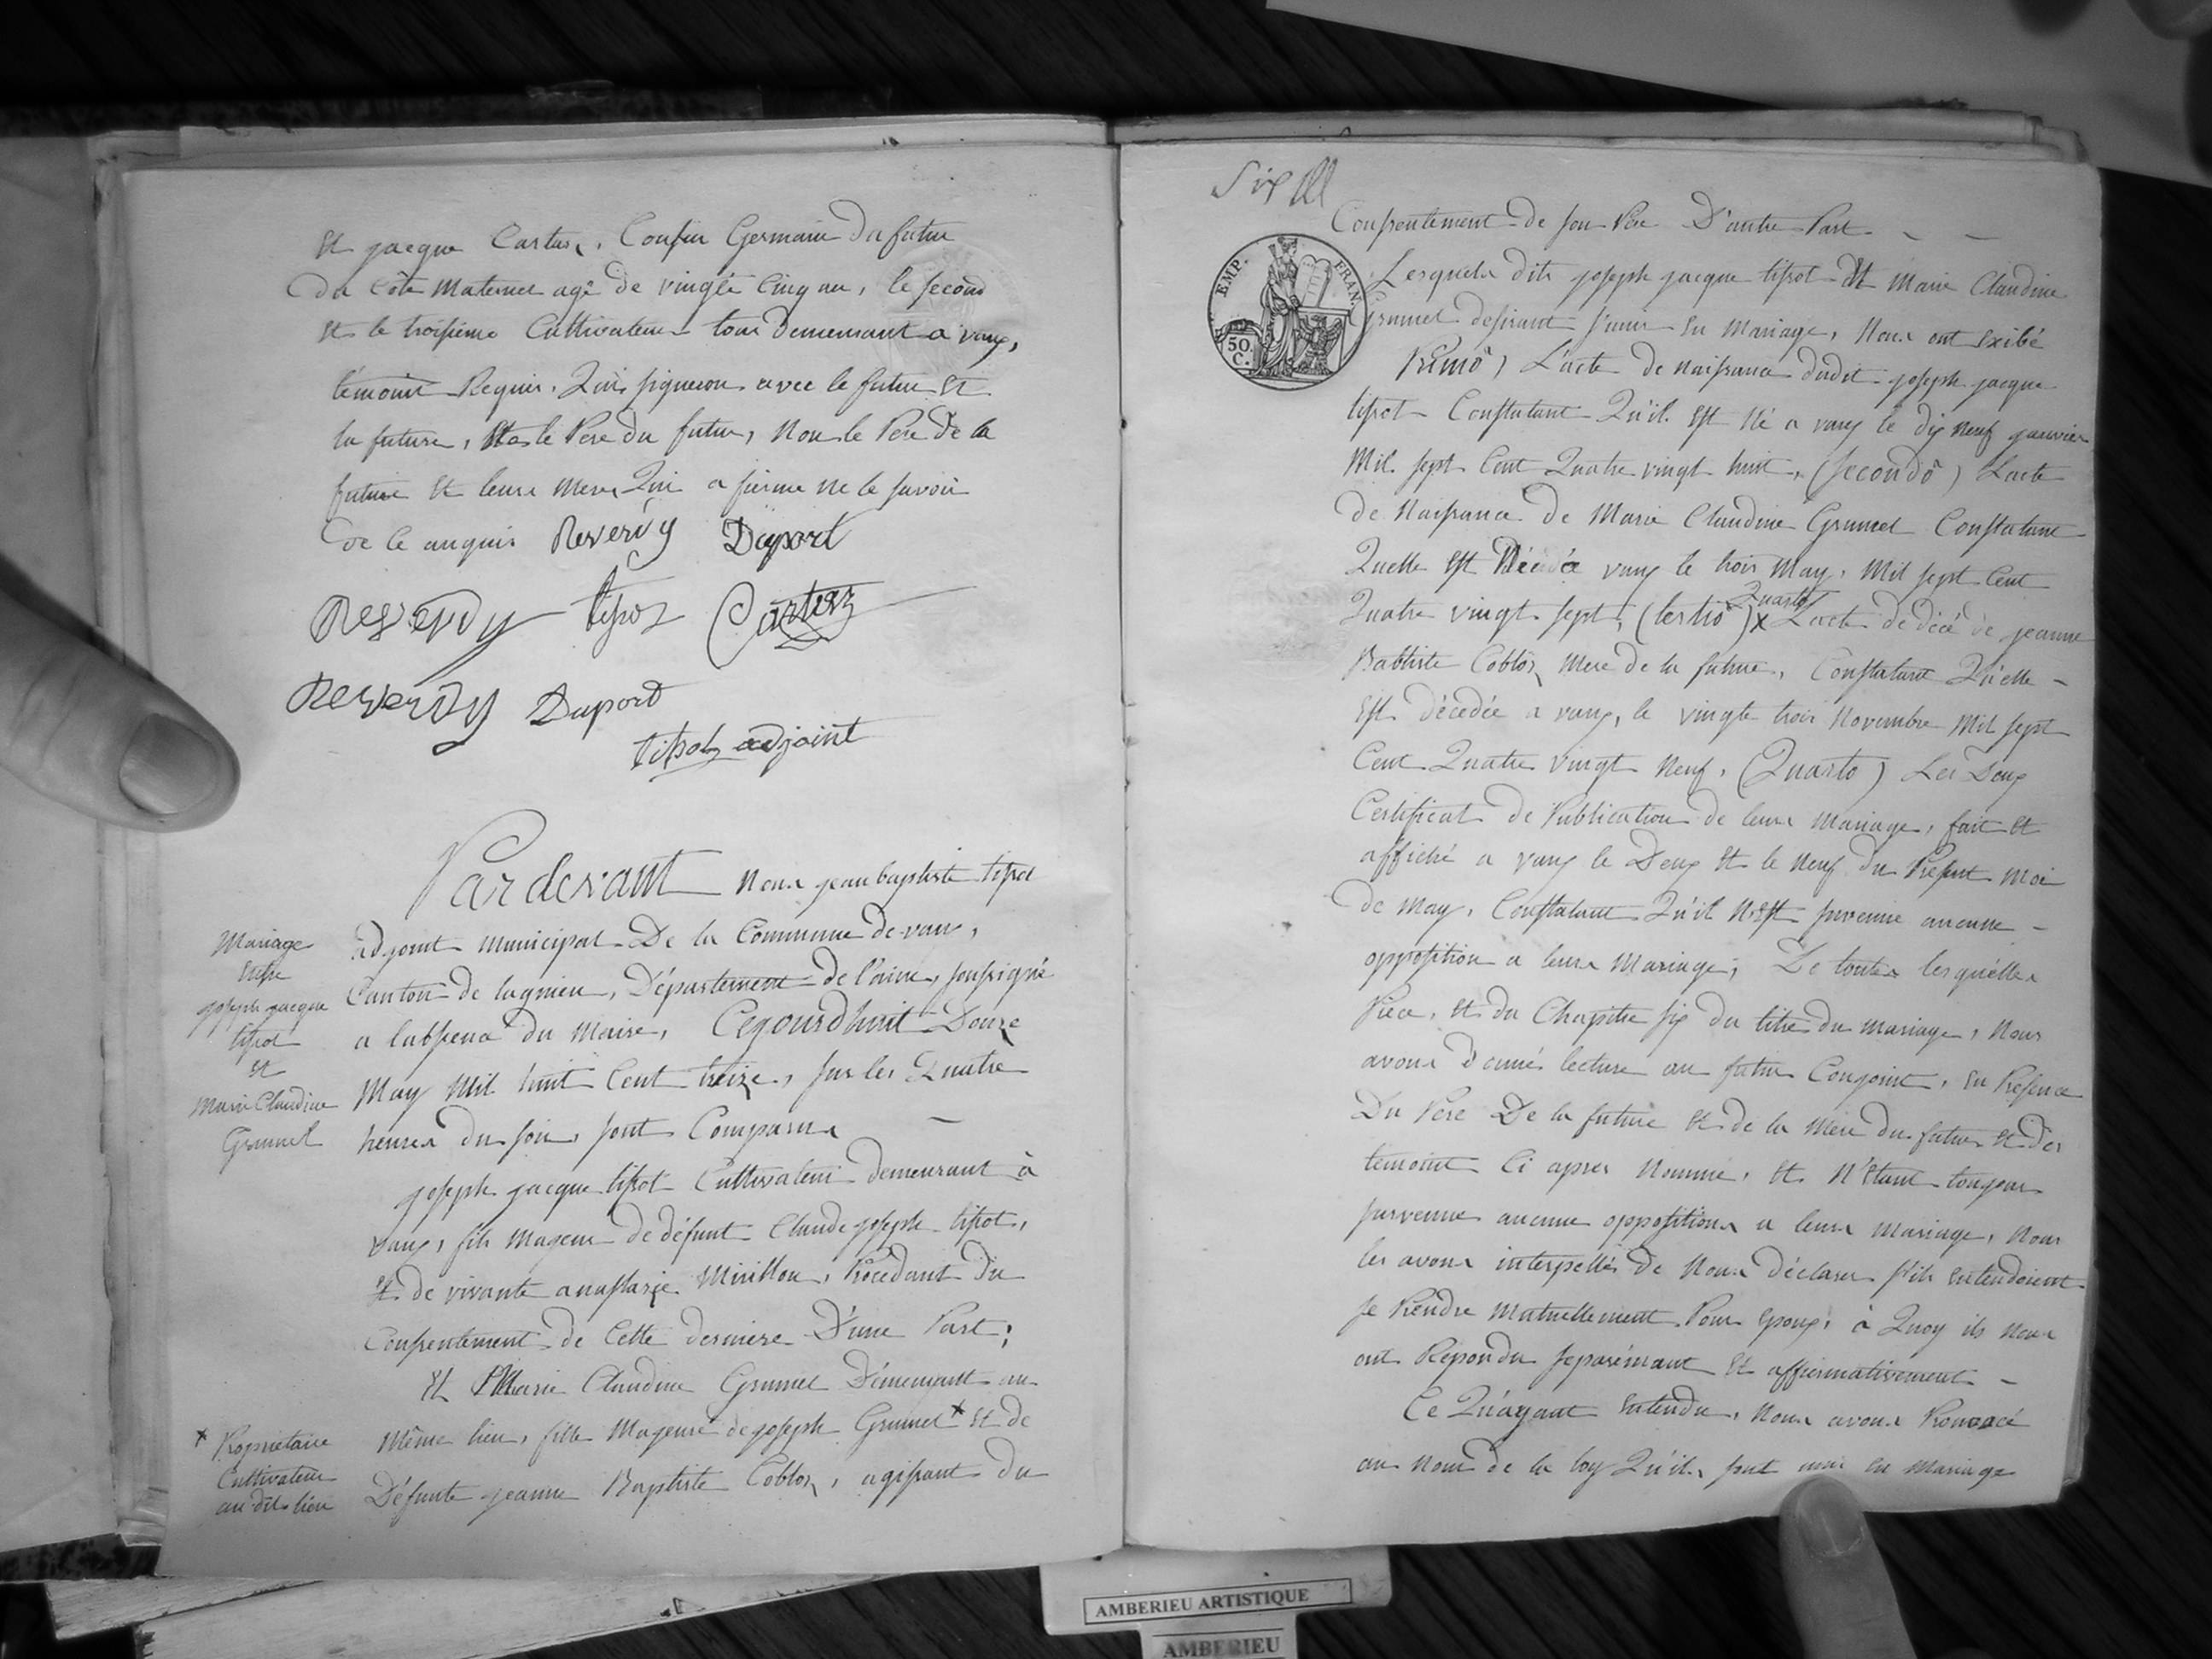 et jacque Cartaz, Cousin Germain du futur
du Côte Maternel age de vingte Cinq an, le second
et le troisieme Cultivateur tous demeurant a vaux,
témoint Requis. Qui signeron avec le futur et
la future, le Pere du futur, non le Pere de la
future et leurs meres Qui a firme ne le savoir
de ce anquis Reverdy Duport
Reverdy tissot Cartaz
Reverdy Duport
tissot adjoint
Pardevant Nous jean baptiste tissot
adjoint municipal De la Commune de vaux,
Canton de lagnieu, Département de l'ain, soussigné
a labsence du Maire, Cejourdhuit Douze
May Mil huit Cent treize, sur les Quatre
heures du soir, sont Comparus
joseph jacque tissot Cultivateur demeurant à
vaux, fils majeur de défunt Claude joseph tissot,
et de vivante anastazie Mirillon, Procedant du
Consentement de Cette derniere D'une Part;
Et Marie Claudine Grumet Démeurant au
Même lieu, fille Majeure de joseph Grumet x et de
Défunte jeanne Baptiste Cobloz, agissant du
Mariage
Entre
joseph jacque
tissot
et
Marie Claudine
Grumel
x Propriétaire
Cultivateur
au dit lieu
Six
Consentement de son Pere D'autre Part
EMP. FRAN.
50 C.
Lesquels dits joseph jacque tissot et Marie Claudine
Grumet desirant s'unir en Mariage, Nous ont exibé
Primô) L'acte de naissance dudit joseph jacque
tissot Constatant Qu'il est Né a vaux le dix neuf janvier
Mil sept Cent Quatre vingt huit, (secondô) Lacte
de Naissance de Marie Claudine Grumet Constatant
Quelle est a vaux le trois May, Mil sept Cent
Quarto
Quatre vingt sept, (tertio) x Lacte de décé de jeanne
Babtiste Cobloz, mere de la future, Constatant Qu'elle
est décedée a vaux, le vingte trois Novembre Mil sept
Cent Quatre vingt Neuf, (Quarto) Les Deux
Certificat de Publication de leurs Mariage, fait et
affiché a vaux le Deux et le Neuf du Present Moi
de May, Constatant Qu'il N'est survenue aucune
opposition a leurs Mariage; De toutes lesquélles
Piece, et du Chapitre six du titre du mariage, Nous
avons donné lecture au futur Conjoint, en Présence
Du Pere De la future et de la Mere du futur et des
temoint Ci apres Nommé, et N'étant toujours
survenue aucune oppositions a leurs Mariage, Nous
les avons interpellés de Nous déclarer s'ils entendoient
se Prendre Mutuellement Pour epoux, à Quoy ils Nous
ont Répondu separémant et affirmativement
Ce Qu'ayant entendu, Nous avons Prononcé
au Nom de la loy Qu'ils sont unis en Mariage
AMBERIEU ARTISTIQUE
AMBERIEU